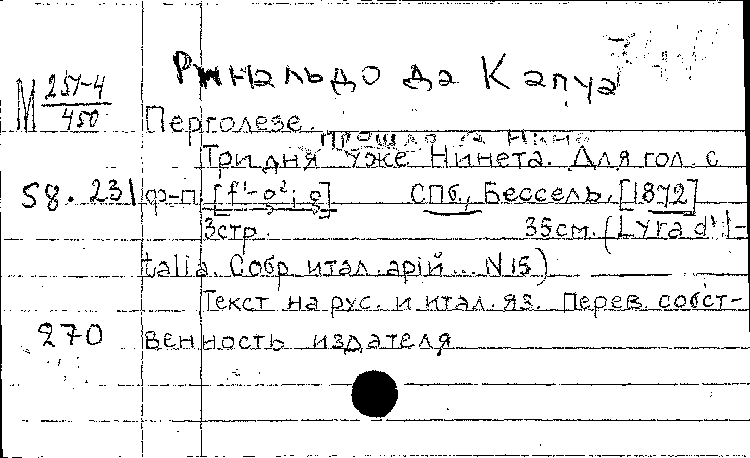 Ринальдо да Капуа
М 251-4
450
Перголезе.
Три дня уже Нинета. Для гол. с
58.231 ф-п. [f¹-g²; g] СПб., Бессель, [1872]
3стр. 35см. (Lyra d'I-
talia. Собр. итал. арій... N 15)
Текст на рус. и итал. яз. Перев. собст-
270 венность издателя